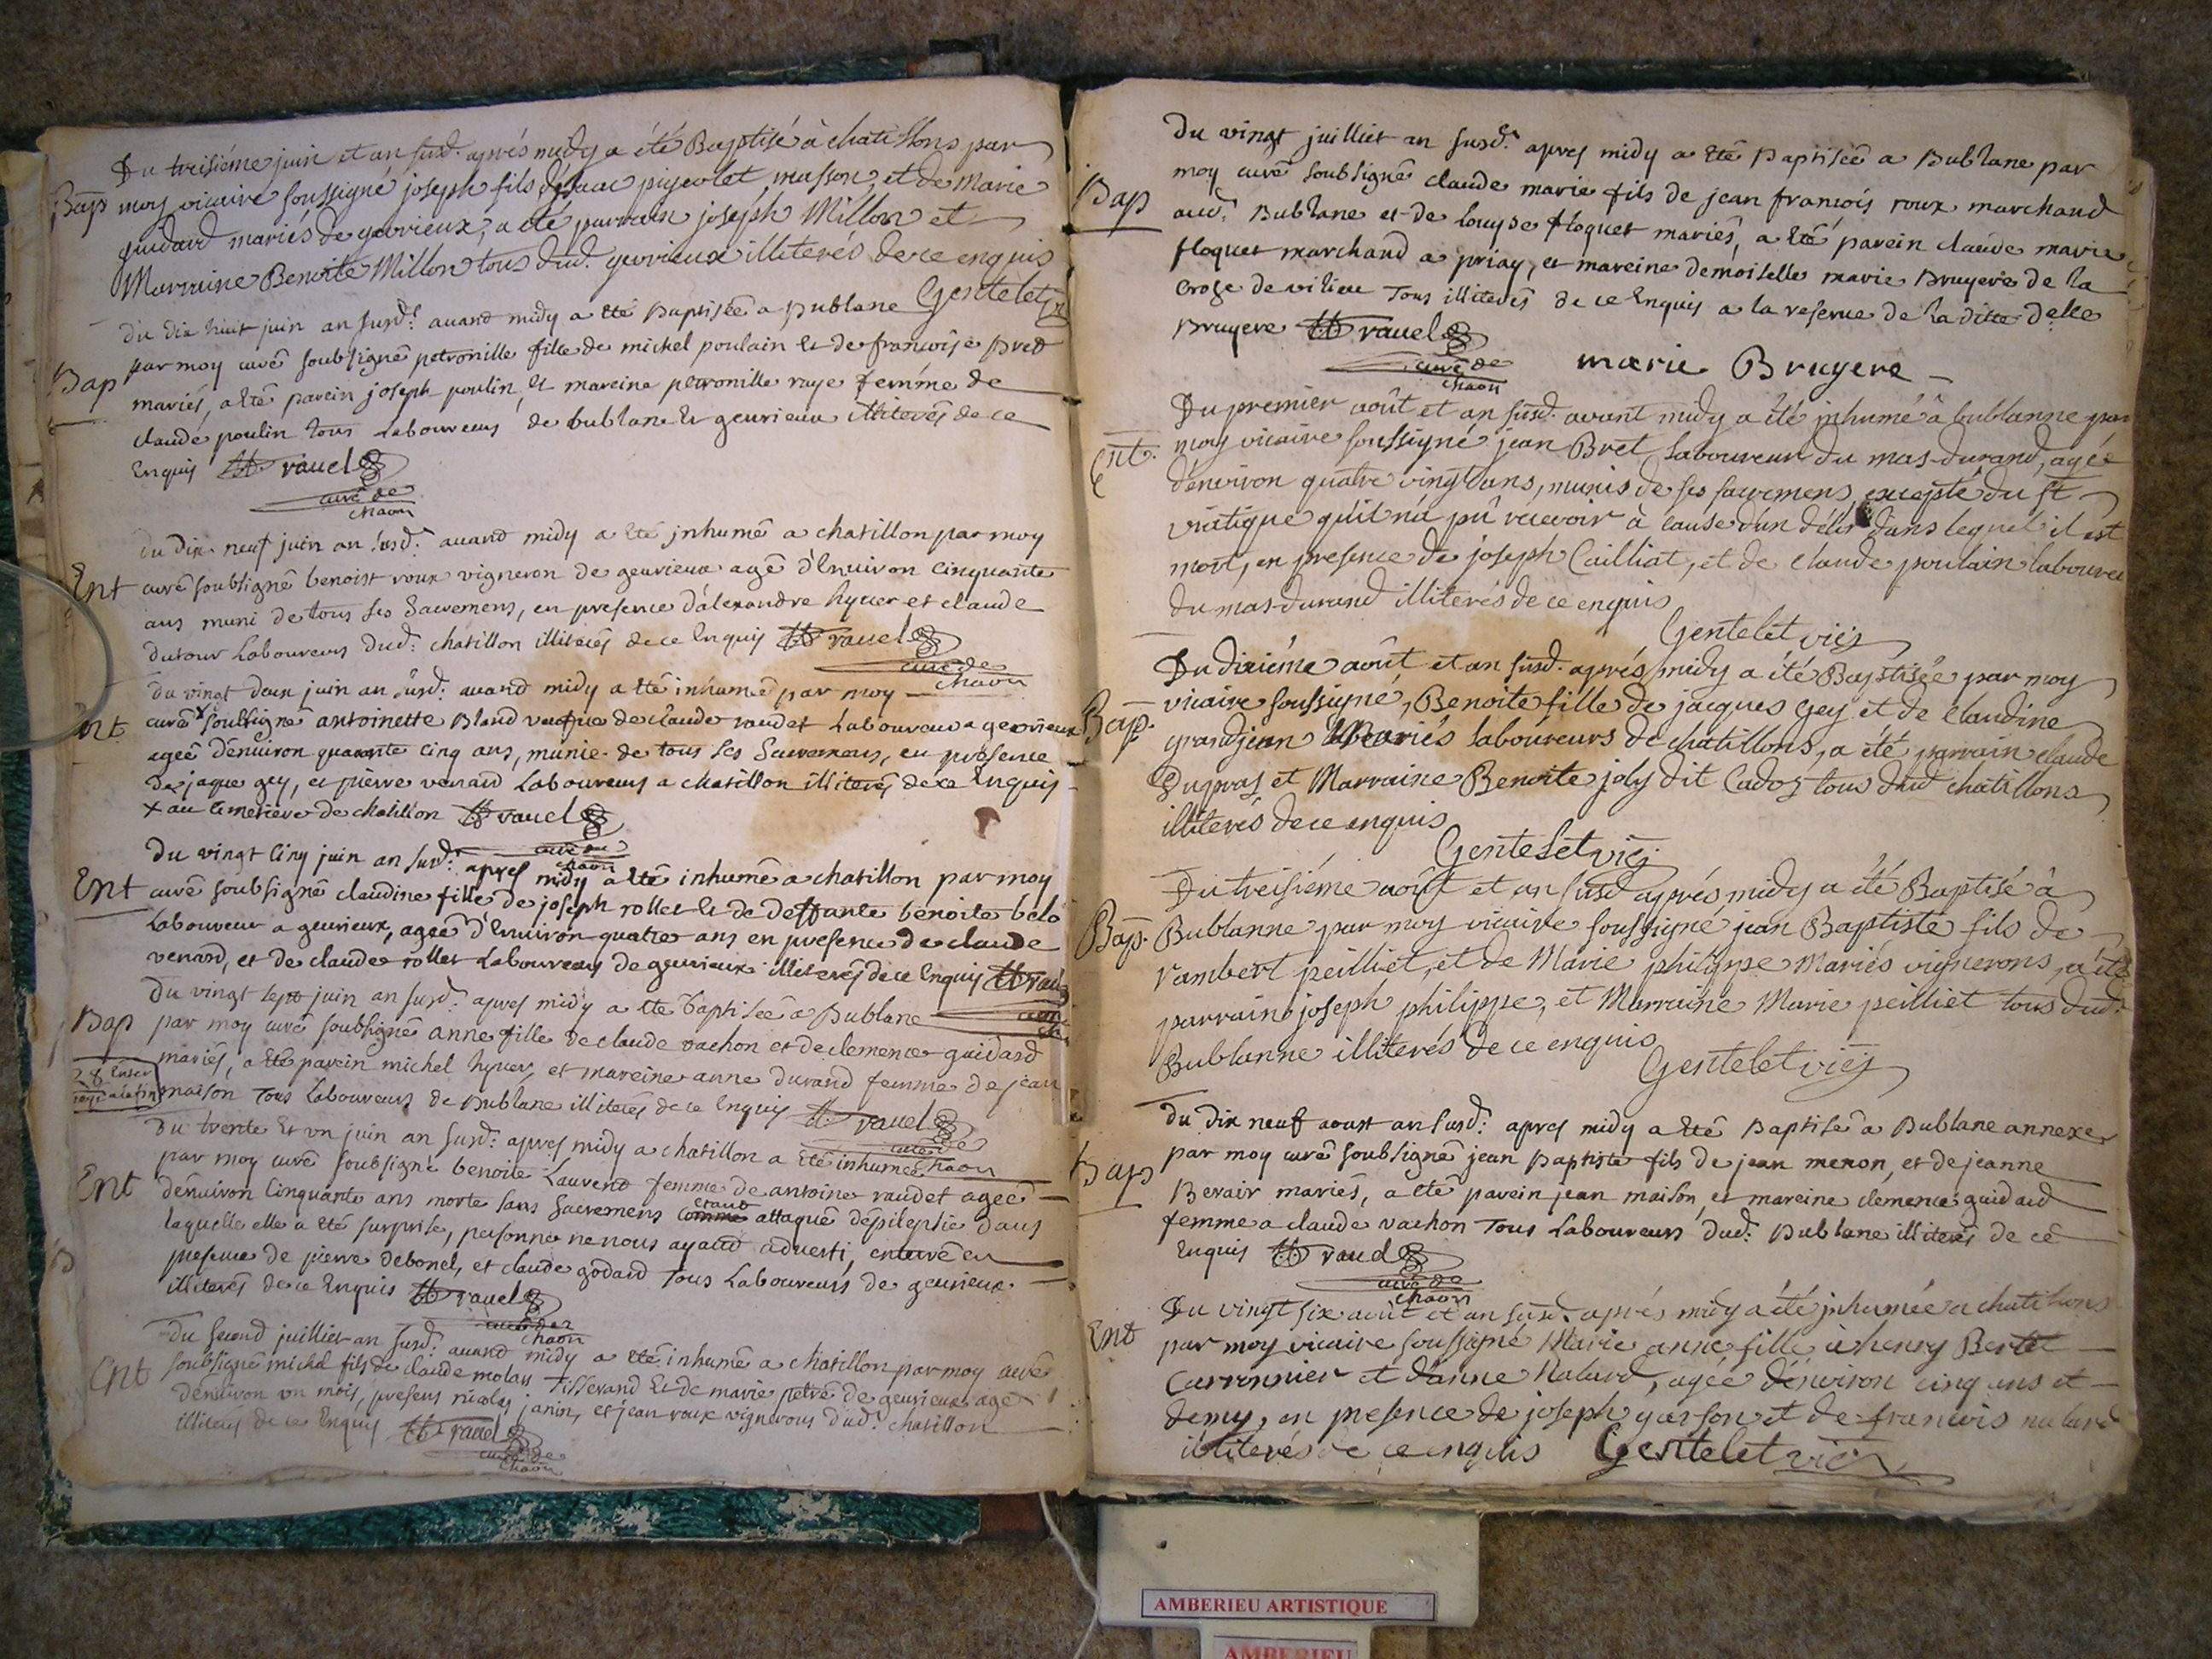 Du treisiéme juin et an susd. aprés midy a été Baptisé à chatillons par
Bap moy vicaire soussigné joseph fils d'isaac pigeolet masson, et de Marie
guidard mariés de gevrieux, a été parrain joseph Millon et
Marraine Benoite Millon tous dud. gevrieux illiterés de ce enquis
Gentelet
du dix huit juin an susd: auand midy a eté Baptiseé a Bublane
par moy curé soubsigné petronille fille de michel poulain et de francoise Bret
Bap
mariés, a eté parein joseph poulin, et mareine petronille raye femme de
claude poulin tous Laboureurs de bublane et geurieux illiterés de ce
Enquis rauel
curé de
chaon
du dix neuf juin an susd: auand midy a eté jnhumé a chatillon par moy
Ent curé soubsigné benoist roux vigneron de geurieux agé d'Enuiron Cinquante
ans muni de tous ses Sacremens, en presence d'alexandre hyuer et claude
dutour Laboureurs dud: chatillon illiterés de ce Enquis rauel
curé de
chaon
du vingt deux juin an susd: auand midy a eté inhumé par moy
Ent. curé x soubsigné antoinette Bland veufue de claude raudet Laboureur a geurieux
ageé d'enuiron quarante cinq ans, munie de tous ses Sacremens, en presence
de jaque gey, et pierre venard Laboureurs a chatillon illiterés de ce Enquis
x au cimetiere de chatillon rauel
curé de
chaon
du vingt Cinq juin an susd: apres midy a eté inhumé a chatillon par moy
Ent curé soubsigné claudine fille de joseph rollet et de deffante benoite belo
Laboureur a geurieux, ageé d'Enuiron quatre ans en presence de claude
venard, et de claude rollet Laboureurs de geurieux illiterés de ce Enquis
du vingt sept juin an susd: apres midy a eté baptiseé a Bublane
Bap par moy curé soubsigné anne fille de claude vachon et de clemence guidard
mariés, a eté parein michel hyuer, et mareine anne durand femme de jean
28
maison Tous Laboureurs de Bublane illiterés de ce Enquis rauel
curé de
chaon
du trente et un juin an susd: apres midy a chatillon a eté inhumeé
par moy curé soubsigné benoite Laurent femme de antoine raudet ageé
Ent
d'enuiron Cinquante ans morte sans Sacremens comme etant attaqué d'epileptie dans
laquelle elle a eté surprise, personne ne nous ayant aduerti, enterré en
presence de pierre debonel, et claude godard Tous Laboureurs de geurieux
illiterés de ce Enquis rauel
curé de
chaon
du second juilliet an susd: auand midy a eté inhumé a chatillon par moy curé
Ent soubsigné michel fils de claude molay Tisserand et de marie petre de geurieux agé
d'enuiron un mois, presens nicolas janin, et jean roux vignerons dud: chatillon
illiterés de ce Enquis rauel
curé de
chaon
du vingt juilliet an susd: apres midy a eté Baptiseé a Bublane par
Bap moy curé soubsigné claude marie fils de jean francois roux marchand
aud: Bublane et de louyse floquet mariés, a eté parein claude marie
floquet marchand a priay, et mareine demoiselle marie Bruyere de la
croze de vilieu Tous illiterés de ce Enquis a la reserue de la ditte delle
Bruyere rauel
curé de
chaon
marie Bruyere
Du premier août et an susd. avant midy a été jnhumé à bublanne par
Ent. moy vicaire soussigné jean Bret laboureur du mas-durand, agé
d'environ quatre vingt ans, munis de ses sacremens, excepté du st
viatique qu'il n'a pû recevoir à cause d'un délir dans lequel il est
mort, en presence de joseph Cailliat, et de claude poulain laboureu
du mas-durand illiterés de ce enquis
Gentelet vic
Du dixiéme août et an susd. aprés midy a été Baptisée par moy
Bap. vicaire soussigné, Benoite fille de jacques Gey et de claudine
grandjean Mariés laboureurs de chatillons, a été parrain claude
Dupras et Marraine Benoite joly dit Cadoz tous dud chatillons
illiterés de ce enquis
Gentelet vic
Du treisiéme août et an susd aprés midy a été Baptisé à
Bap. Bublanne par moy vicaire soussigné jean Baptiste fils de
rambert peilliet, et de Marie philippe Mariés vignerons, a été
parrain joseph philippe, et Marraine Marie peilliet tous dud.
Bublanne illiterés de ce enquis
Gentelet vic
du dix neuf aoust an susd: apres midy a eté Baptisé a Bublane annexe
Bap par moy curé soubsigné jean Baptiste fils de jean menon, et de jeanne
Berair mariés, a eté parein jean maison, et mareine clémence guidard
femme a claude vachon Tous Laboureurs dud: Bublane illiterés de ce
Enquis rauel
curé de
chaon
Du vingt six août et an susd. aprés midy a été jnhumée a chatillons
Ent par moy vicaire soussigné Marie anne fille à henry Bertet
Carronnier et d'anne Nalard, agée d'environ cinq ans et
demy, en presence de joseph garson et de francois nalard
illiterés de ce enquis Gentelet vic
AMBERIEU ARTISTIQUE
AMBERIEU